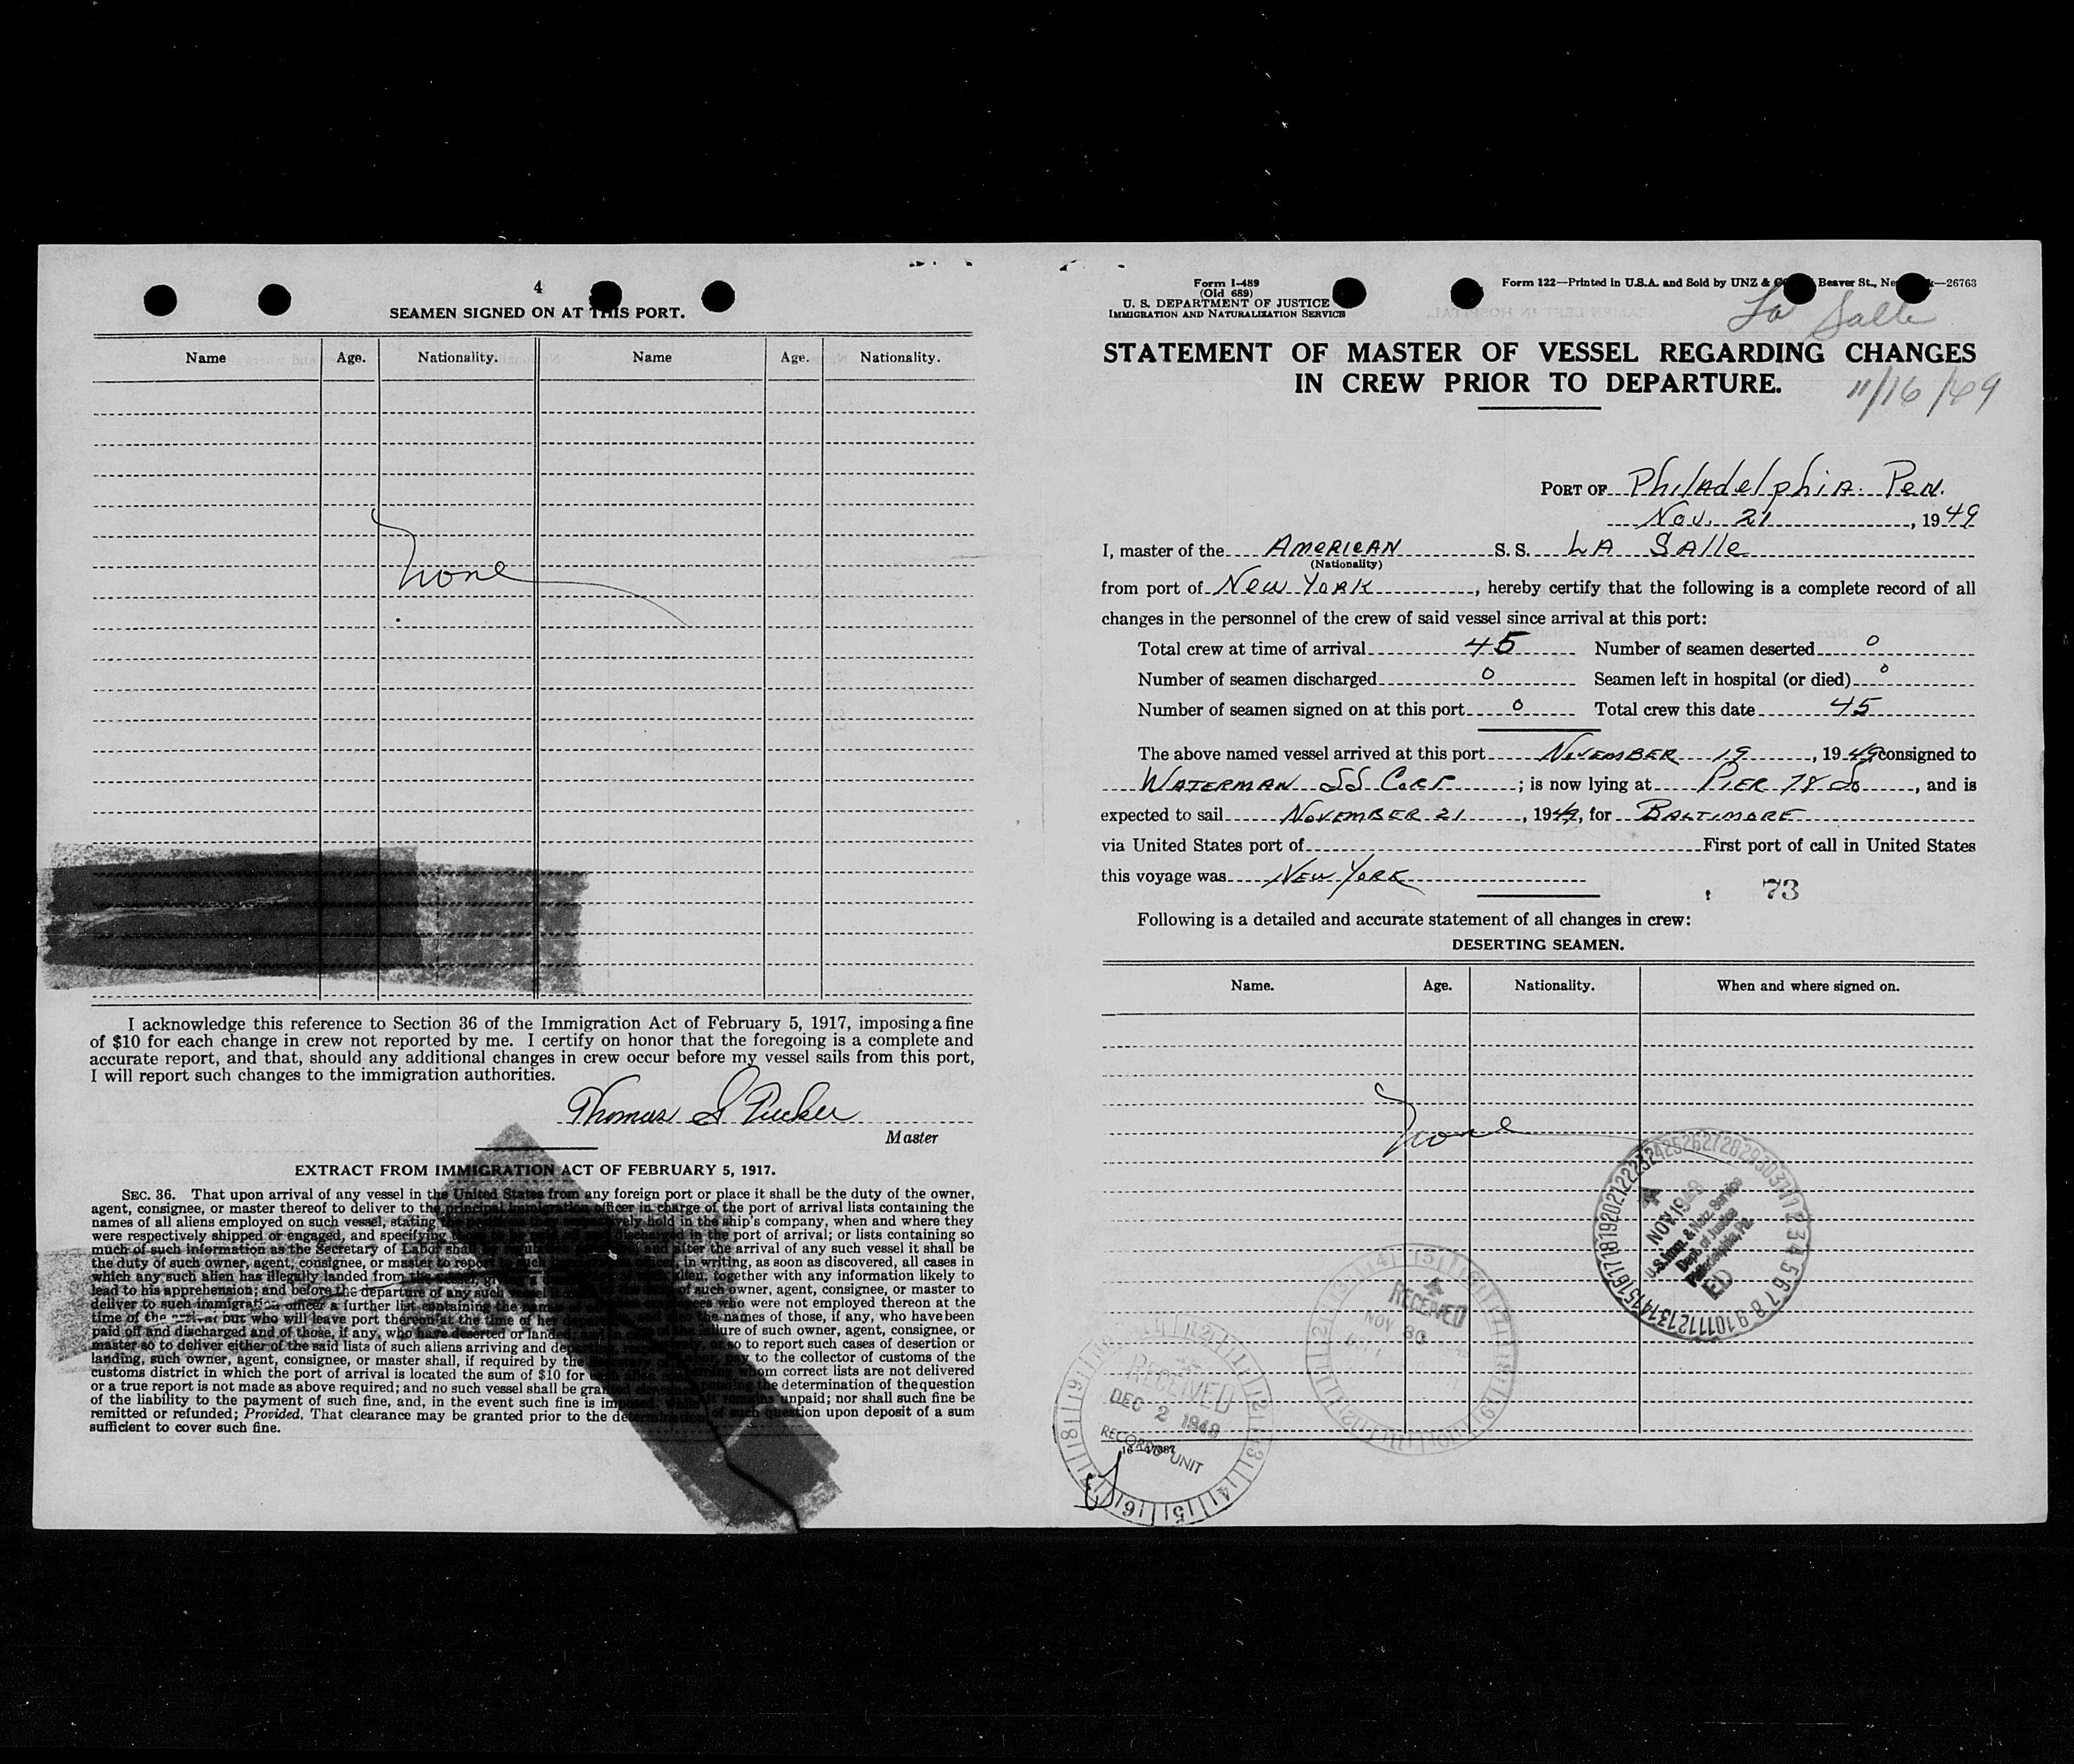 4
SEAMEN SIGNED ON AT THIS PORT.
Name Age. Nationality. Name Age. Nationality.
None
I acknowledge this reference to Section 36 of the Immigration Act of February 5, 1917, imposing a fine
of $10 for each change in crew not reported by me. I certify on honor that the foregoing is a complete and
accurate report, and that, should any additional changes in crew occur before my vessel sails from this port,
I will report such changes to the immigration authorities.
Thomas S Tucker
Master
EXTRACT FROM IMMIGRATION ACT OF FEBRUARY 5, 1917.
SEC. 36. That upon arrival of any vessel in the United States from any foreign port or place it shall be the duty of the owner,
agent, consignee, or master thereof to deliver to the principal immigration officer in charge of the port of arrival lists containing the
names of all aliens employed on such vessel, stating the positions they respectively hold in the ship's company, when and where they
were respectively shipped or engaged, and specifying those to be discharged in the port of arrival; or lists containing so
much of such information as the Secretary of Labor shall by and after the arrival of any such vessel it shall be
the duty of such owner, agent, consignee, or master to report to such officer, in writing, as soon as discovered, all cases in
which any such alien has illegally landed from the vessel, alien, together with any information likely to
lead to his apprehension; and before the departure of any such vessel of such owner, agent, consignee, or master to
deliver to such immigration officer a further list containing the names of who were not employed thereon at the
time of the arrival but who will leave port thereon at the time of her the names of those, if any, who have been
paid off and discharged and of those, if any, who have deserted or landed; failure of such owner, agent, consignee, or
master so to deliver either of the said lists of such aliens arriving and or so to report such cases of desertion or
landing, such owner, agent, consignee, or master shall, if required by the pay to the collector of customs of the
customs district in which the port of arrival is located the sum of $10 for whom correct lists are not delivered
or a true report is not made as above required; and no such vessel shall be granted pending the determination of the question
of the liability to the payment of such fine, and, in the event such fine is imposed, while it remains unpaid; nor shall such fine be
remitted or refunded; Provided, That clearance may be granted prior to the determination of such question upon deposit of a sum
sufficient to cover such fine.
Form I-489
(Old 689)
U. S. DEPARTMENT OF JUSTICE
IMMIGRATION AND NATURALIZATION SERVICE
Form 122—Printed in U.S.A. and Sold by UNZ & Beaver St., —26763
La Salle
STATEMENT OF MASTER OF VESSEL REGARDING CHANGES
IN CREW PRIOR TO DEPARTURE.
11/16/49
PORT OF Philadelphia Pen.
Nov. 21, 1949
I, master of the American S. S. LA SAlle
(Nationality)
from port of New York, hereby certify that the following is a complete record of all
changes in the personnel of the crew of said vessel since arrival at this port:
Total crew at time of arrival 45 Number of seamen deserted 0
Number of seamen discharged 0 Seamen left in hospital (or died) 0
Number of seamen signed on at this port 0 Total crew this date 45
The above named vessel arrived at this port November 19, 1949 consigned to
WATERMAN SS CORP; is now lying at PIER 78 So, and is
expected to sail NOVEMBER 21, 1949, for BALTIMORE
via United States port of First port of call in United States
this voyage was NEW YORK
73
Following is a detailed and accurate statement of all changes in crew:
DESERTING SEAMEN.
Name. Age. Nationality. When and where signed on.
None
NOV 19
U.S. Imm. & Natz. Service
Dept. of Justice
Philadelphia, Pa.
ED
RECEIVED
NOV 30
RECEIVED
DEC 2 1949
RECORD UNIT